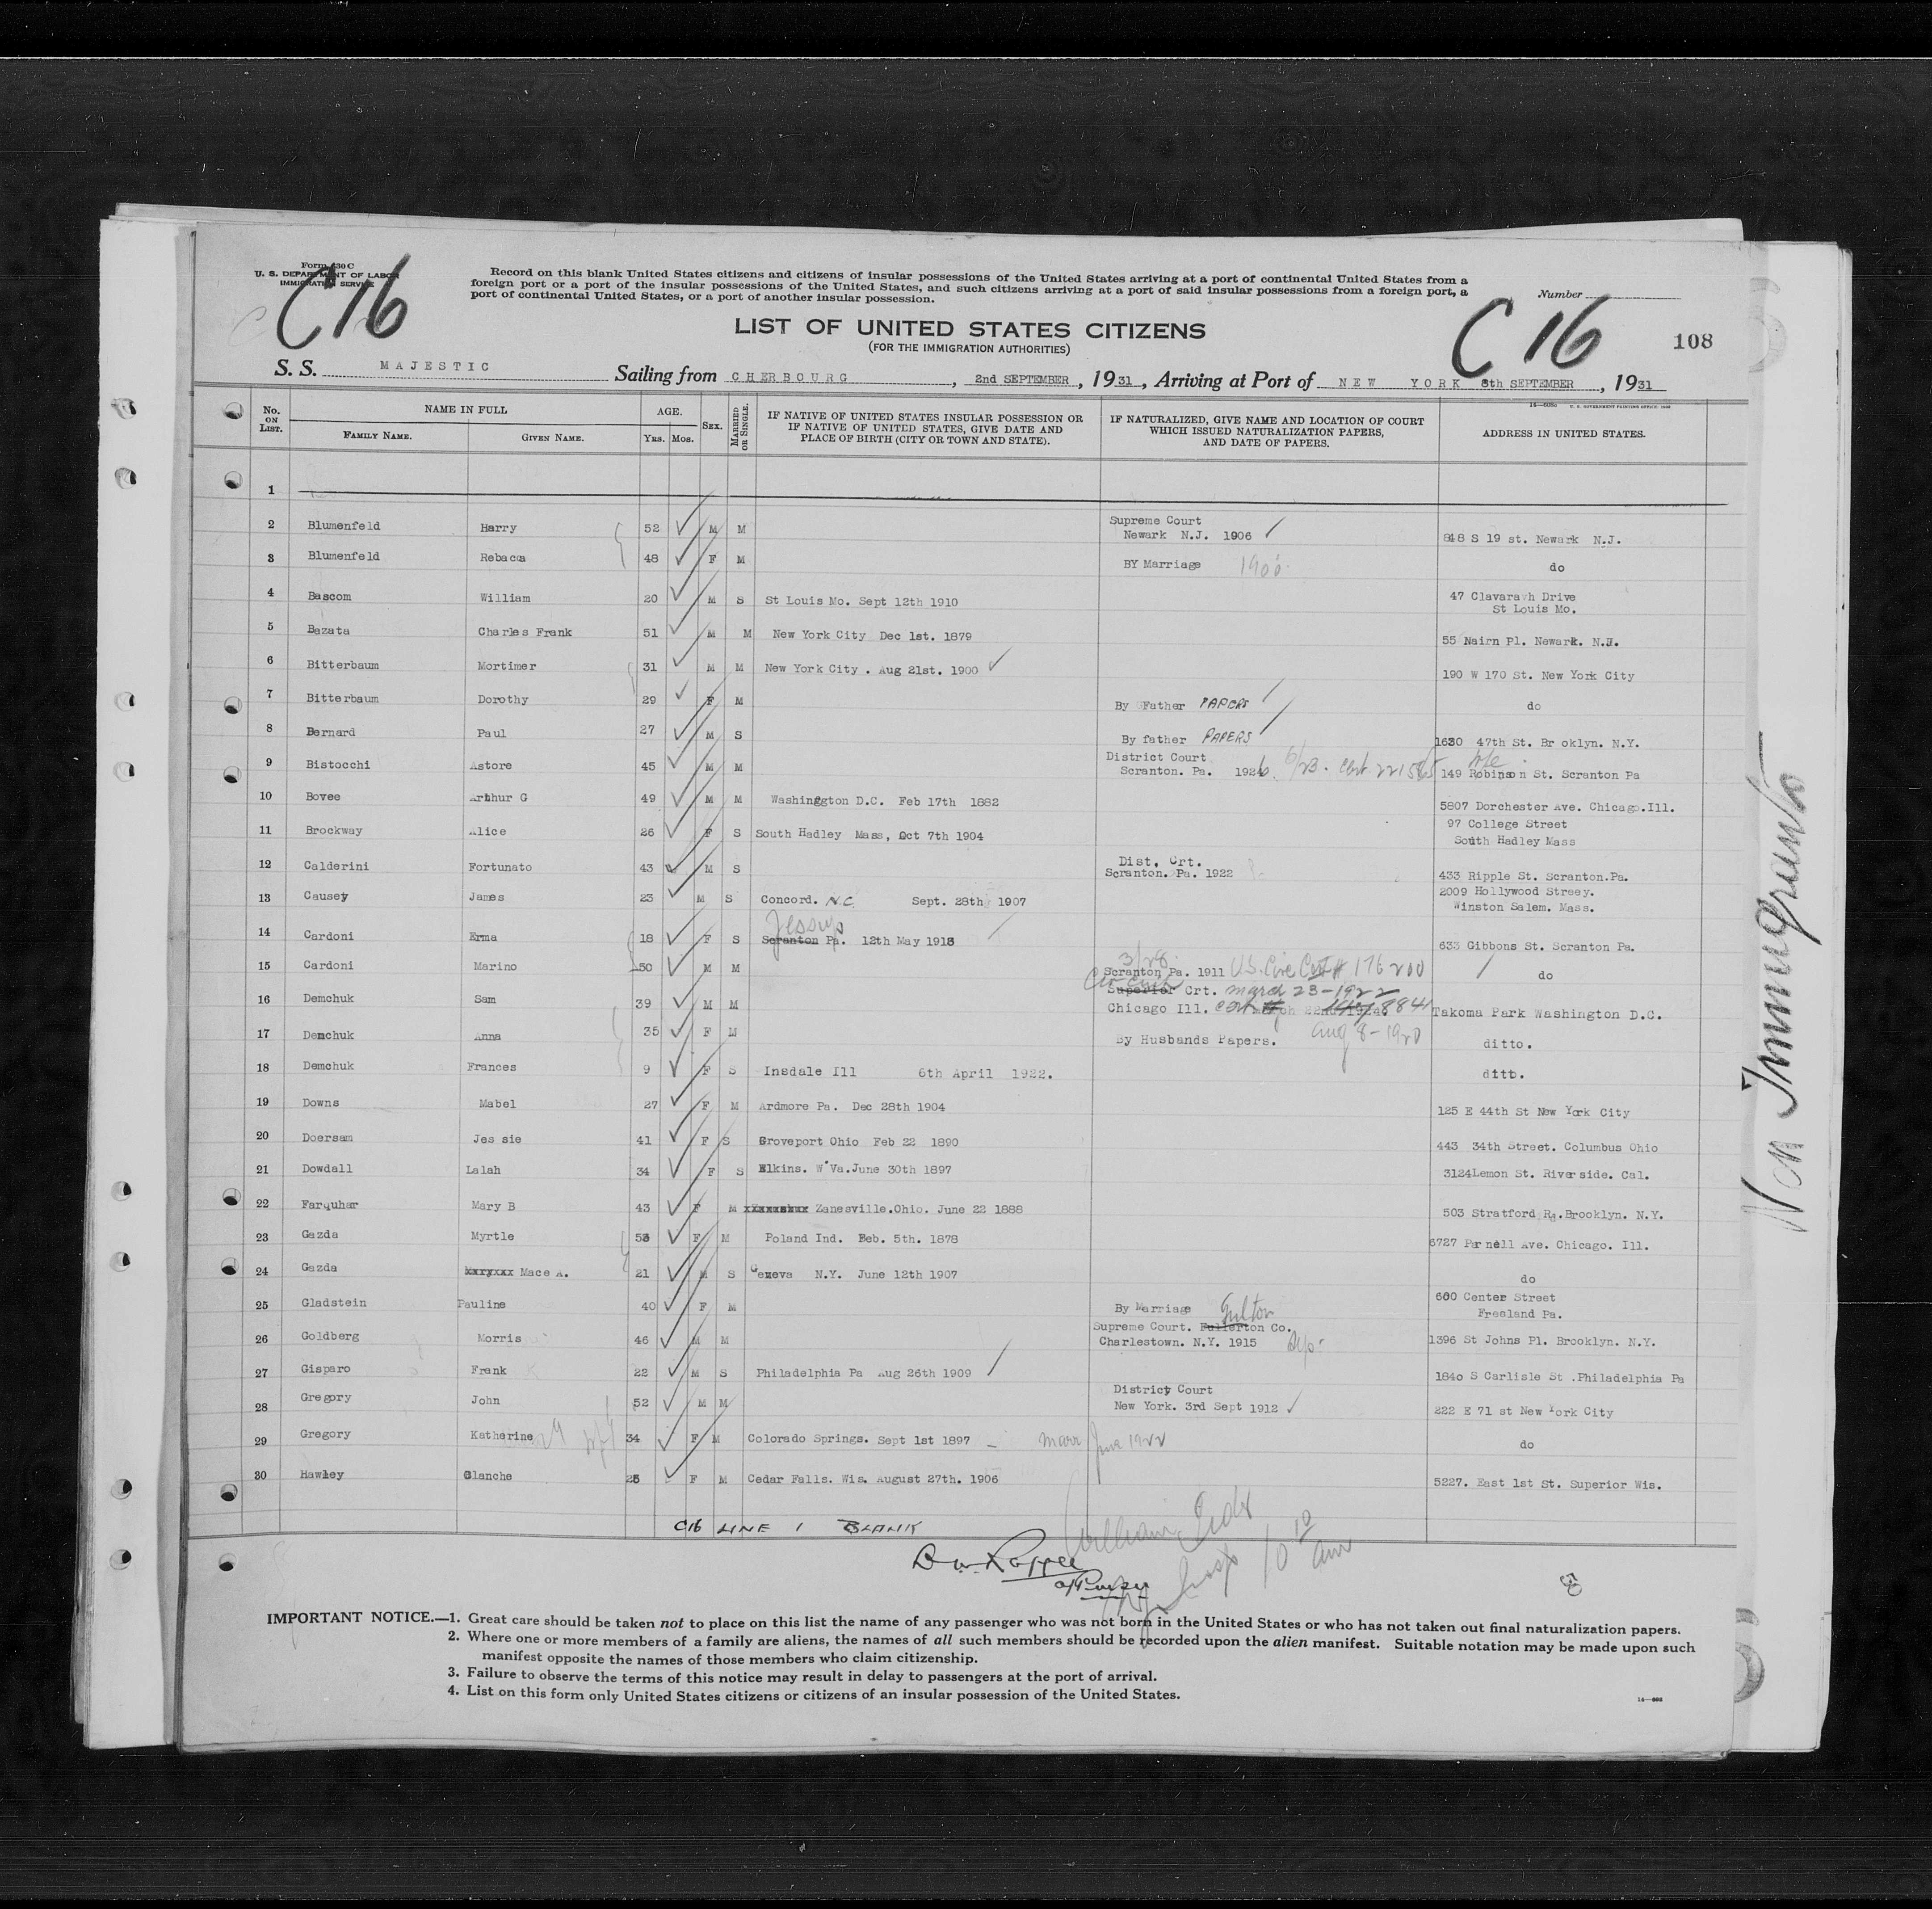 Form 630 C
U. S. DEPARTMENT OF LABOR
IMMIGRATION SERVICE
C16
Record on this blank United States citizens and citizens of insular possessions of the United States arriving at a port of continental United States from a
foreign port or a port of the insular possessions of the United States, and such citizens arriving at a port of said insular possessions from a foreign port, a
port of continental United States, or a port of another insular possession.
Number
C 16
108
LIST OF UNITED STATES CITIZENS
(FOR THE IMMIGRATION AUTHORITIES)
S. S. MAJESTIC Sailing from CHERBOURG, 2nd SEPTEMBER, 1931, Arriving at Port of NEW YORK 8th SEPTEMBER, 1931
No. ON LIST. NAME IN FULL FAMILY NAME. GIVEN NAME. AGE. YRS. MOS. SEX. MARRIED OR SINGLE. IF NATIVE OF UNITED STATES INSULAR POSSESSION OR IF NATIVE OF UNITED STATES, GIVE DATE AND PLACE OF BIRTH (CITY OR TOWN AND STATE). IF NATURALIZED, GIVE NAME AND LOCATION OF COURT WHICH ISSUED NATURALIZATION PAPERS, AND DATE OF PAPERS. ADDRESS IN UNITED STATES.
1
2 Blumenfeld Harry 52 M M Supreme Court Newark N.J. 1906 848 S 19 st. Newark N.J.
3 Blumenfeld Rebacca 48 F M BY Marriage 1900 do
4 Bascom William 20 M S St Louis Mo. Sept 12th 1910 47 Clavarach Drive St Louis Mo.
5 Bazata Charles Frank 51 M M New York City Dec 1st. 1879 55 Nairn Pl. Newark. N.J.
6 Bitterbaum Mortimer 31 M M New York City . Aug 21st. 1900 190 W 170 St. New York City
7 Bitterbaum Dorothy 29 F M By Father PAPERS do
8 Bernard Paul 27 M S By father PAPERS 1630 47th St. Br oklyn. N.Y.
9 Bistocchi Astore 45 M M District Court Scranton. Pa. 1926 6/23 . Cert 221585 149 Robinson St. Scranton Pa
10 Bovee Arthur G 49 M M Washinggton D.C. Feb 17th 1882 5807 Dorchester Ave. Chicago.Ill.
11 Brockway Alice 26 F S South Hadley Mass, Oct 7th 1904 97 College Street South Hadley Mass
12 Calderini Fortunato 43 M S Dist. Crt. Scranton. Pa. 1922 433 Ripple St. Scranton.Pa.
13 Causey James 23 M S Concord. N.C. Sept. 28th 1907 2009 Hollywood Streey. Winston Salem. Mass.
14 Cardoni Erma 18 F S Jessup Scranton Pa. 12th May 1913 633 Gibbons St. Scranton Pa.
15 Cardoni Marino 50 M M 3/28 Scranton Pa. 1911 U.S. Circ Cert # 176200 do
16 Demchuk Sam 39 M M Superior Crt. March 23-1922 Chicago Ill. Takoma Park Washington D.C.
17 Demchuk Anna 35 F M By Husbands Papers. Aug 8-1920 ditto.
18 Demchuk Frances 9 F S Insdale Ill 6th April 1922. ditto.
19 Downs Mabel 27 F M Ardmore Pa. Dec 28th 1904 125 E 44th St New York City
20 Doersam Jes sie 41 F S Groveport Ohio Feb 22 1890 443 34th Street. Columbus Ohio
21 Dowdall Lalah 34 F S Elkins. W Va.June 30th 1897 3124Lemon St. River side. Cal.
22 Farquhar Mary B 43 F M Zanesville.Ohio. June 22 1888 503 Stratford Rd.Brooklyn. N.Y.
23 Gazda Myrtle 53 F M Poland Ind. Feb. 5th. 1878 6727 Parnell Ave. Chicago. Ill.
24 Gazda Mace A. 21 M S Geneva N.Y. June 12th 1907 do
25 Gladstein Pauline 40 F M By Marriage 600 Center Street Freeland Pa.
26 Goldberg Morris 46 M M Supreme Court. Fullerton Co. Fulton Charlestown. N.Y. 1915 1396 St Johns Pl. Brooklyn. N.Y.
27 Gisparo Frank 22 M S Philadelphia Pa Aug 26th 1909 1840 S Carlisle St .Philadelphia Pa
28 Gregory John 52 M M District Court New York. 3rd Sept 1912 222 E 71 st New York City
29 Gregory Katherine 34 F M Colorado Springs. Sept 1st 1897 marr June 1922 do
30 Hawley Blanche 25 F M Cedar Falls. Wis. August 27th. 1906 5227. East 1st St. Superior Wis.
C16 LINE 1 BLANK
10 10 am
Non Immigrants
IMPORTANT NOTICE.—1. Great care should be taken not to place on this list the name of any passenger who was not born in the United States or who has not taken out final naturalization papers.
2. Where one or more members of a family are aliens, the names of all such members should be recorded upon the alien manifest. Suitable notation may be made upon such
manifest opposite the names of those members who claim citizenship.
3. Failure to observe the terms of this notice may result in delay to passengers at the port of arrival.
4. List on this form only United States citizens or citizens of an insular possession of the United States.